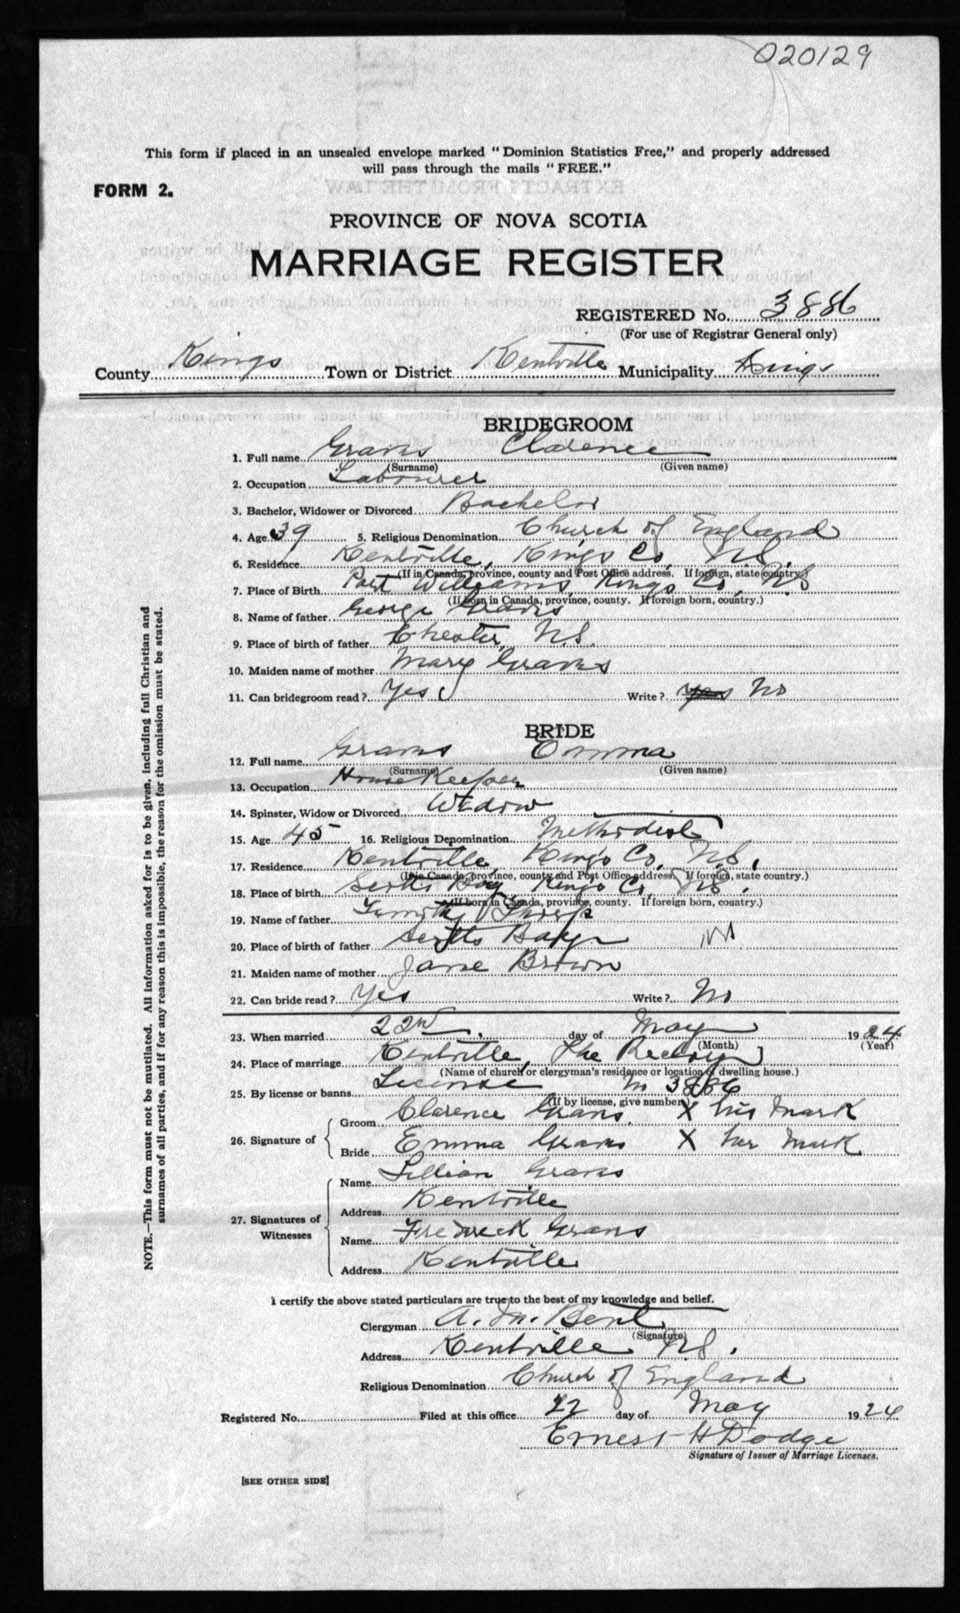 020129
This form if placed in an unsealed envelope marked "Dominion Statistics Free," and properly addressed
will pass through the mails "FREE."
FORM 2.
PROVINCE OF NOVA SCOTIA
MARRIAGE REGISTER
REGISTERED No. 3886
(For use of Registrar General only)
County Kings Town or District Kentville Municipality Kings
BRIDEGROOM
1. Full name Graves Clarence
(Surname) (Given name)
2. Occupation Labourer
3. Bachelor, Widower or Divorced Bachelor
4. Age 39 5. Religious Denomination Church of England
6. Residence Kentville, Kings Co, N.S.
(If in Canada, province, county and Post Office address. If foreign, state country.)
7. Place of Birth Port Williams, Kings Co, N.S
(If born in Canada, province, county. If foreign born, country.)
8. Name of father George Graves
9. Place of birth of father Chester, N.S.
10. Maiden name of mother Mary Graves
11. Can bridegroom read? Yes Write? yes No
BRIDE
12. Full name Graves Emma
(Surname) (Given name)
13. Occupation House Keeper
14. Spinster, Widow or Divorced Widow
15. Age 45 16. Religious Denomination Methodist
17. Residence Kentville, King's Co, N.S.
(If in Canada, province, county and Post Office address. If foreign, state country.)
18. Place of birth Bay Kings Co, N.S.
(If born in Canada, province, county. If foreign born, country.)
19. Name of father Timothy
20. Place of birth of father Bay NS
21. Maiden name of mother Jane Brown
22. Can bride read? Yes Write? No
23. When married 22nd. day of May 1924
(Month) (Year)
24. Place of marriage Kentville, The Rectory
(Name of church or clergyman's residence or location of dwelling house.)
25. By license or banns License No 3886
(If by license, give number.)
26. Signature of
Groom Clarence Graves. X his Mark
Bride Emma Graves X her Mark
27. Signatures of Witnesses
Name Lillian Graves
Address Kentville
Name Fredreck Graves
Address Kentville
I certify the above stated particulars are true to the best of my knowledge and belief.
Clergyman A. M. Bent
(Signature)
Address Kentville N.S.
Religious Denomination Church of England
Registered No. Filed at this office 22 day of May 1924
Ernest H Dodge
Signature of Issuer of Marriage Licenses.
[SEE OTHER SIDE]
NOTE.—This form must not be mutilated. All information asked for is to be given, including full Christian and
surnames of all parties, and if for any reason this is impossible, the reason for the omission must be stated.